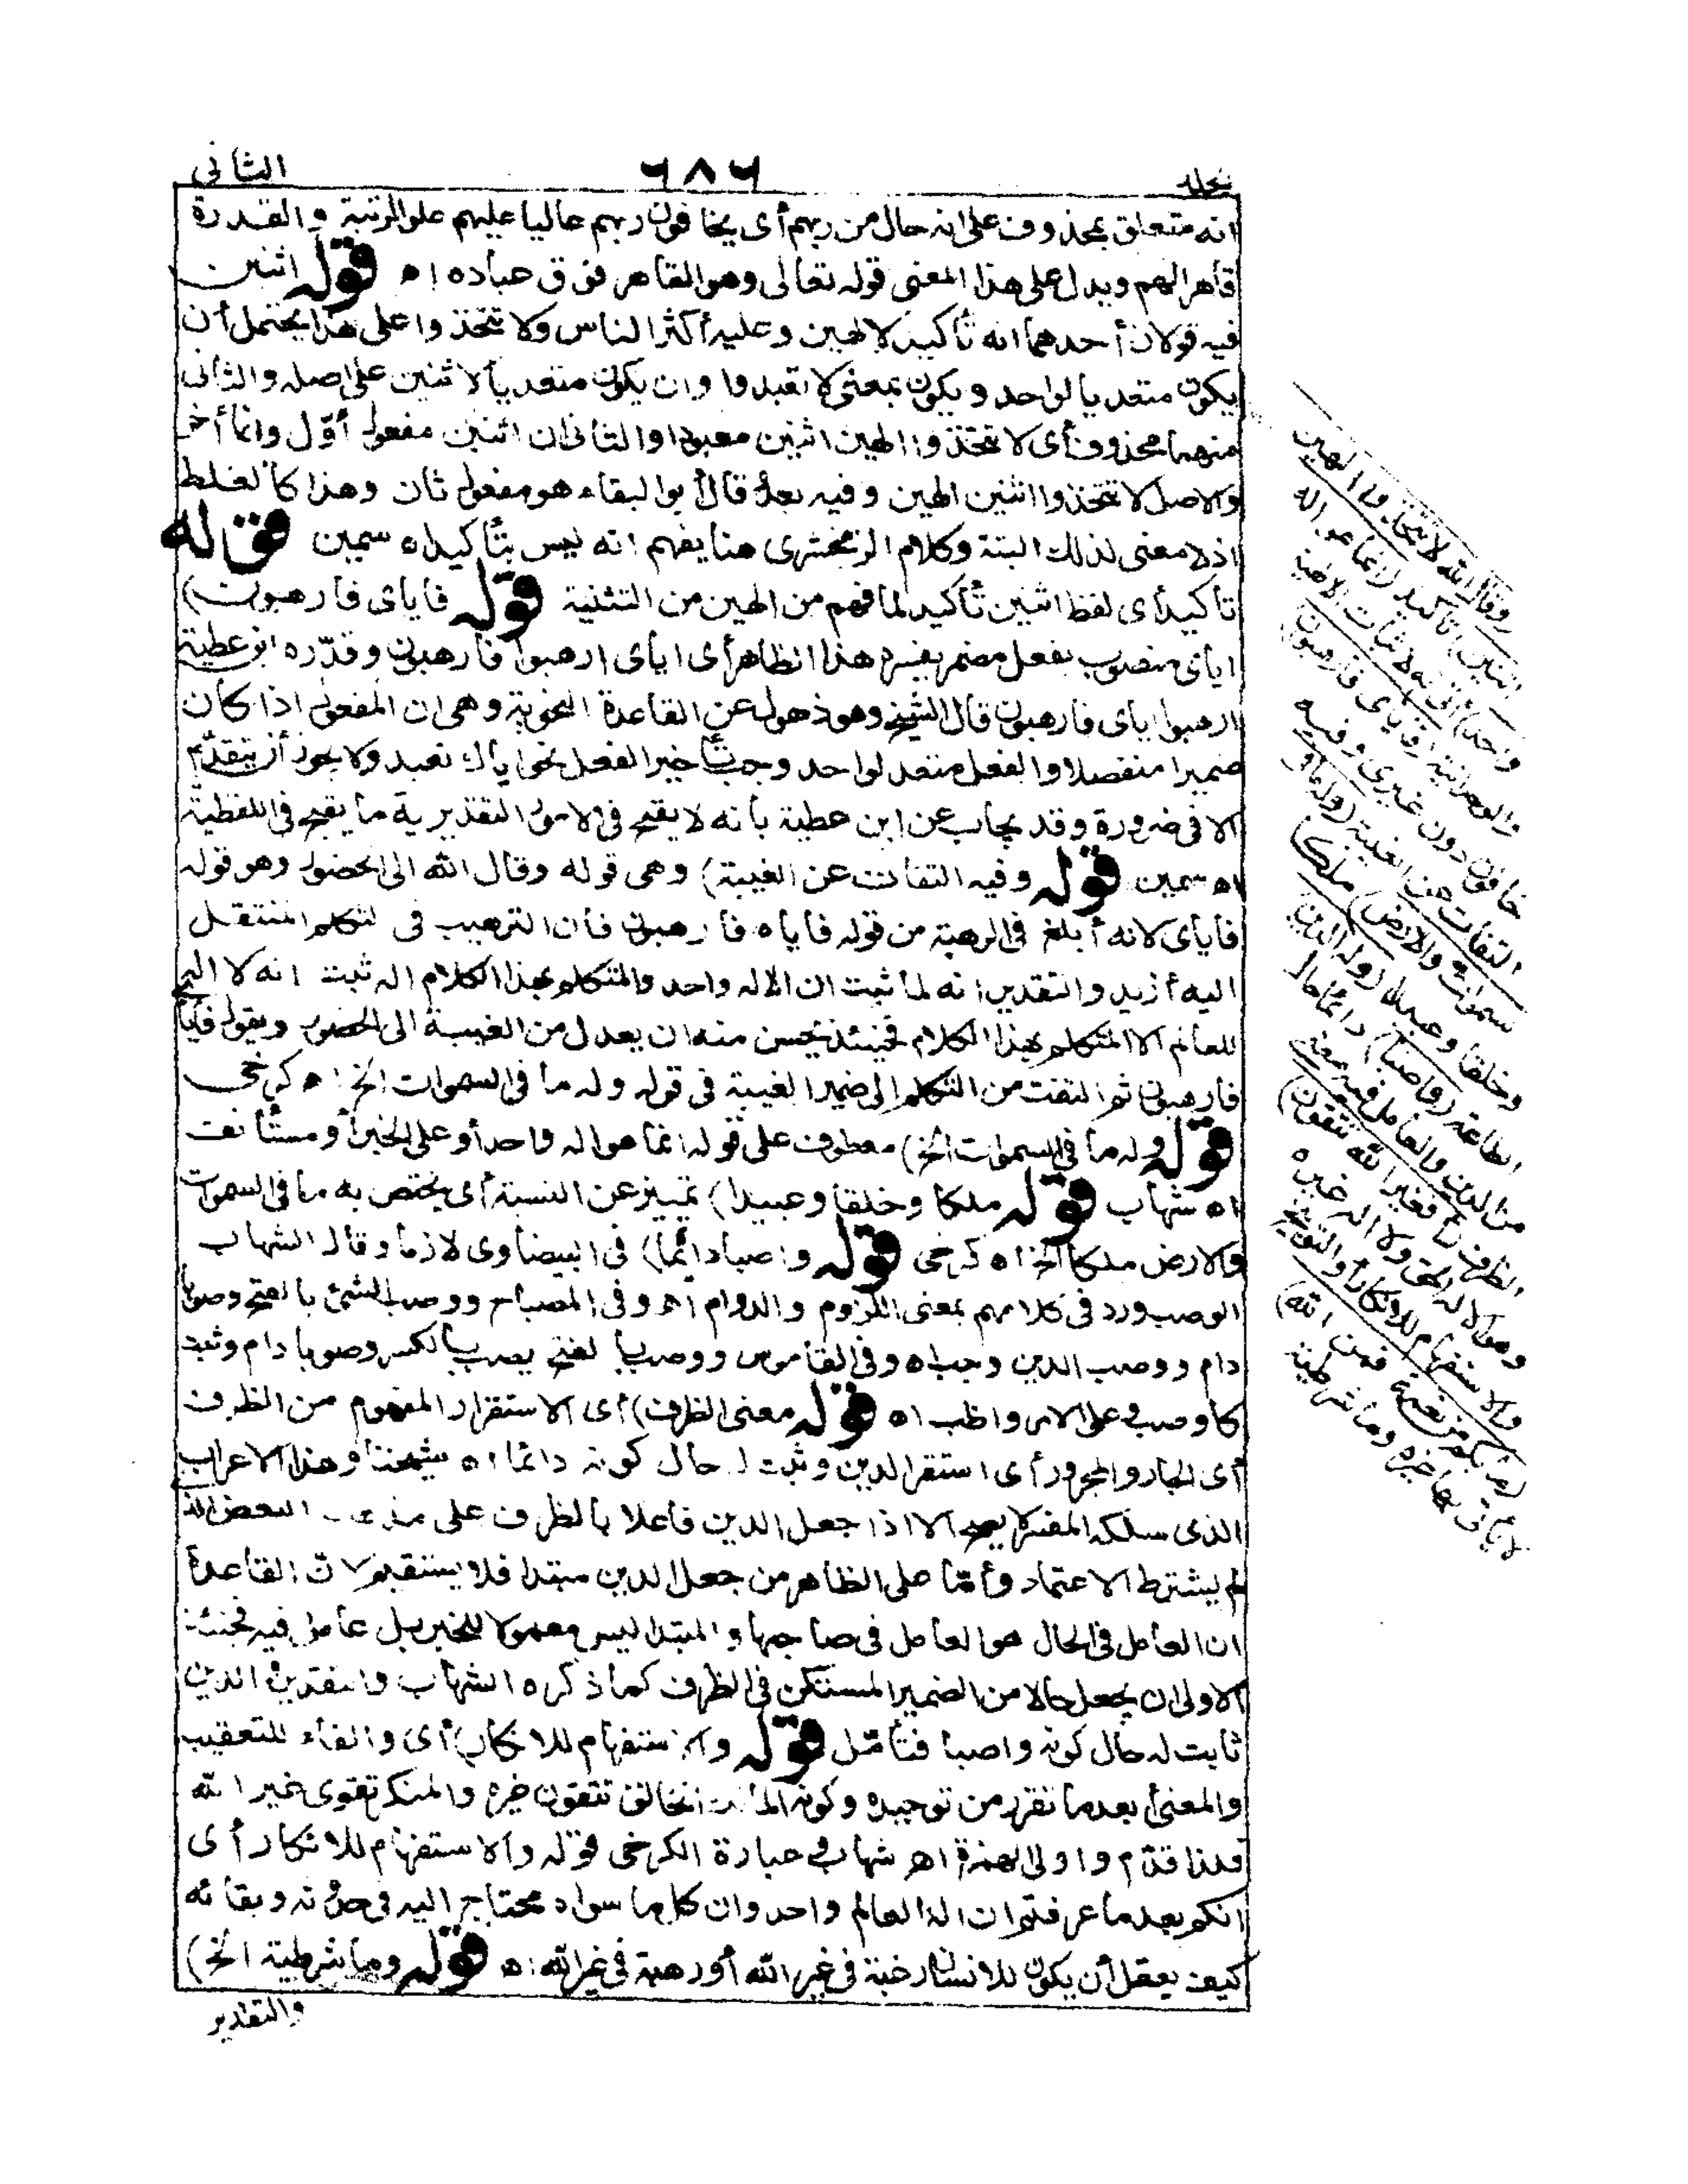 مجلد
٦٨٦
الثانى
انه متعلق بمحذوف على انه حال من ربهم أى يخافون ربهم عاليا عليهم علو الرتبة والقدرة
قاهرا لهم ويدل على هذا المعنى قوله تعالى وهو القاهر فوق عباده اه قوله اثنين
فيه قولان أحدهما انه تأكيد لالهين وعليه أكثر الناس ولا تتخذوا على هذا يحتمل أن
يكون متعديا لواحد ويكون بمعنى لا تعبدوا وان يكون متعديا لاثنين على اصله والثانى
منهما محذوف أى لا تتخذوا الهين اثنين معبودا والثانى ان اثنين مفعول أوّل وانما أخر
والاصل لا تتخذوا اثنين الهين وفيه بعد قال أبو البقاء هو مفعول ثان وهذا كالغلط
اذ لا معنى لذلك البتة وكلام الزمخشرى هنا يفهم انه ليس بتأكيد اه سمين قوله
تأكيد أى لفظ اثنين تأكيد لما فهم من الهين من التثنية قوله فاياى فارهبون)
اياى منصوب بفعل مضمر يفسره هذا الظاهر أى اياى ارهبوا فارهبون وقدّره ابن عطية
ارهبوا اياى فارهبون قال الشيخ وهو ذهول عن القاعدة النحوية وهى ان المفعول اذا كان
ضميرا منفصلا والفعل متعد لواحد وجب تأخير الفعل نحو اياك نعبد ولا يجوز أن يتقدّم
الا فى ضرورة وقد يجاب عن ابن عطية بأنه لا يقبح فى الامور التقديرية ما يقبح فى اللفظية
اه سمين قوله وفيه التفات عن الغيبة) وهى قوله وقال الله الى الحضور وهو قوله
فاياى لانه أبلغ فى الرهبة من قوله فاياه فارهبون فان الترهيب فى التكلم المنتقل
اليه أزيد والتقدير انه لما ثبت ان الاله واحد والمتكلم بهذا الكلام اله ثبت انه لا اله
للعالم الا المتكلم بهذا الكلام فحينئذ يحسن منه ان يعدل من الغيبة الى الحضور ويقول فاياى
فارهبون ثم التفت من التكلم الى ضمير الغيبة فى قوله وله ما فى السموات الخ اه كرخى
قوله وله ما فى السموات الخ) معطوف على قوله انما هو اله واحد أو على الخبر أو مستأنف
اه شهاب قوله ملكا وخلقا وعبيدا) تمييز عن النسبة أى يختص به ما فى السموات
والارض ملكا الخ اه كرخى قوله واصبا دائما) فى البيضاوى لازما وقال الشهاب
الوصب ورد فى كلامهم بمعنى اللزوم والدوام اه وفى المصباح ووصب الشئ بالفتح وصوبا
دام ووصب الدين وجب اه وفى القاموس ووصب بالفتح يصب بالكسر وصوبا دام وثبت
كأوصب وعلى الامر واظب اه قوله معنى الظرف) أى الاستقرار المفهوم من الظرف
أى الجار والمجرور أى استقر الدين وثبت له حال كونه دائما اه شيخنا وهذا الاعراب
الذى سلكه المفسر لا يصح الا اذا جعل الدين فاعلا بالظرف على مذهب البعض الذى
لم يشترط الاعتماد وأمّا على الظاهر من جعل الدين مبتدا فلا يستقيم لانّ القاعدة
ان العامل فى الحال هو العامل فى صاحبها والمبتدا ليس معمولا للخبر بل عامل فيه فحينئذ
الاولى ان يجعل حالا من الضمير المستكن فى الظرف كما ذكره الشهاب والتقدير الدين
ثابت له حال كونه واصبا فتأمّل قوله والاستفهام للانكار) أى والفاء للتعقيب
والمعنى أبعد ما تقرر من توحيده وكونه المالك الخالق تتقون غيره والمنكر تقوى غير الله
فلذا قدّم واولى الهمزة اه شهاب وفى عبارة الكرخى قوله والاستفهام للانكار أى
انكم بعد ما عرفتم ان اله العالم واحد وان كل ما سواه محتاج اليه فى حدوثه وبقائه
كيف يعقل أن يكون للانسان رغبة فى غير الله أو رهبة فى غير الله اه قوله وما شرطية الخ)
والتقدير
روقال الله لا تتخذوا الهين
اثنين) تأكيد (انما هو اله
واحد) أتى به لاثبات الالهية
والوحدانية (فاياى فارهبون)
خافون دون غيرى وفيه
التفات عن الغيبة (وله ما فى
السموات والارض) ملكا
وخلقا وعبيدا (وله الدين)
الطاعة (واصبا) دائما حال
من الدين والعامل فيه معنى
الظرف (أفغير الله تتقون)
وهو الاله الحق ولا اله غيره
والاستفهام للانكار والتوبيخ
(وما بكم من نعمة فمن الله)
لا يأتى بها غيره وما شرطية